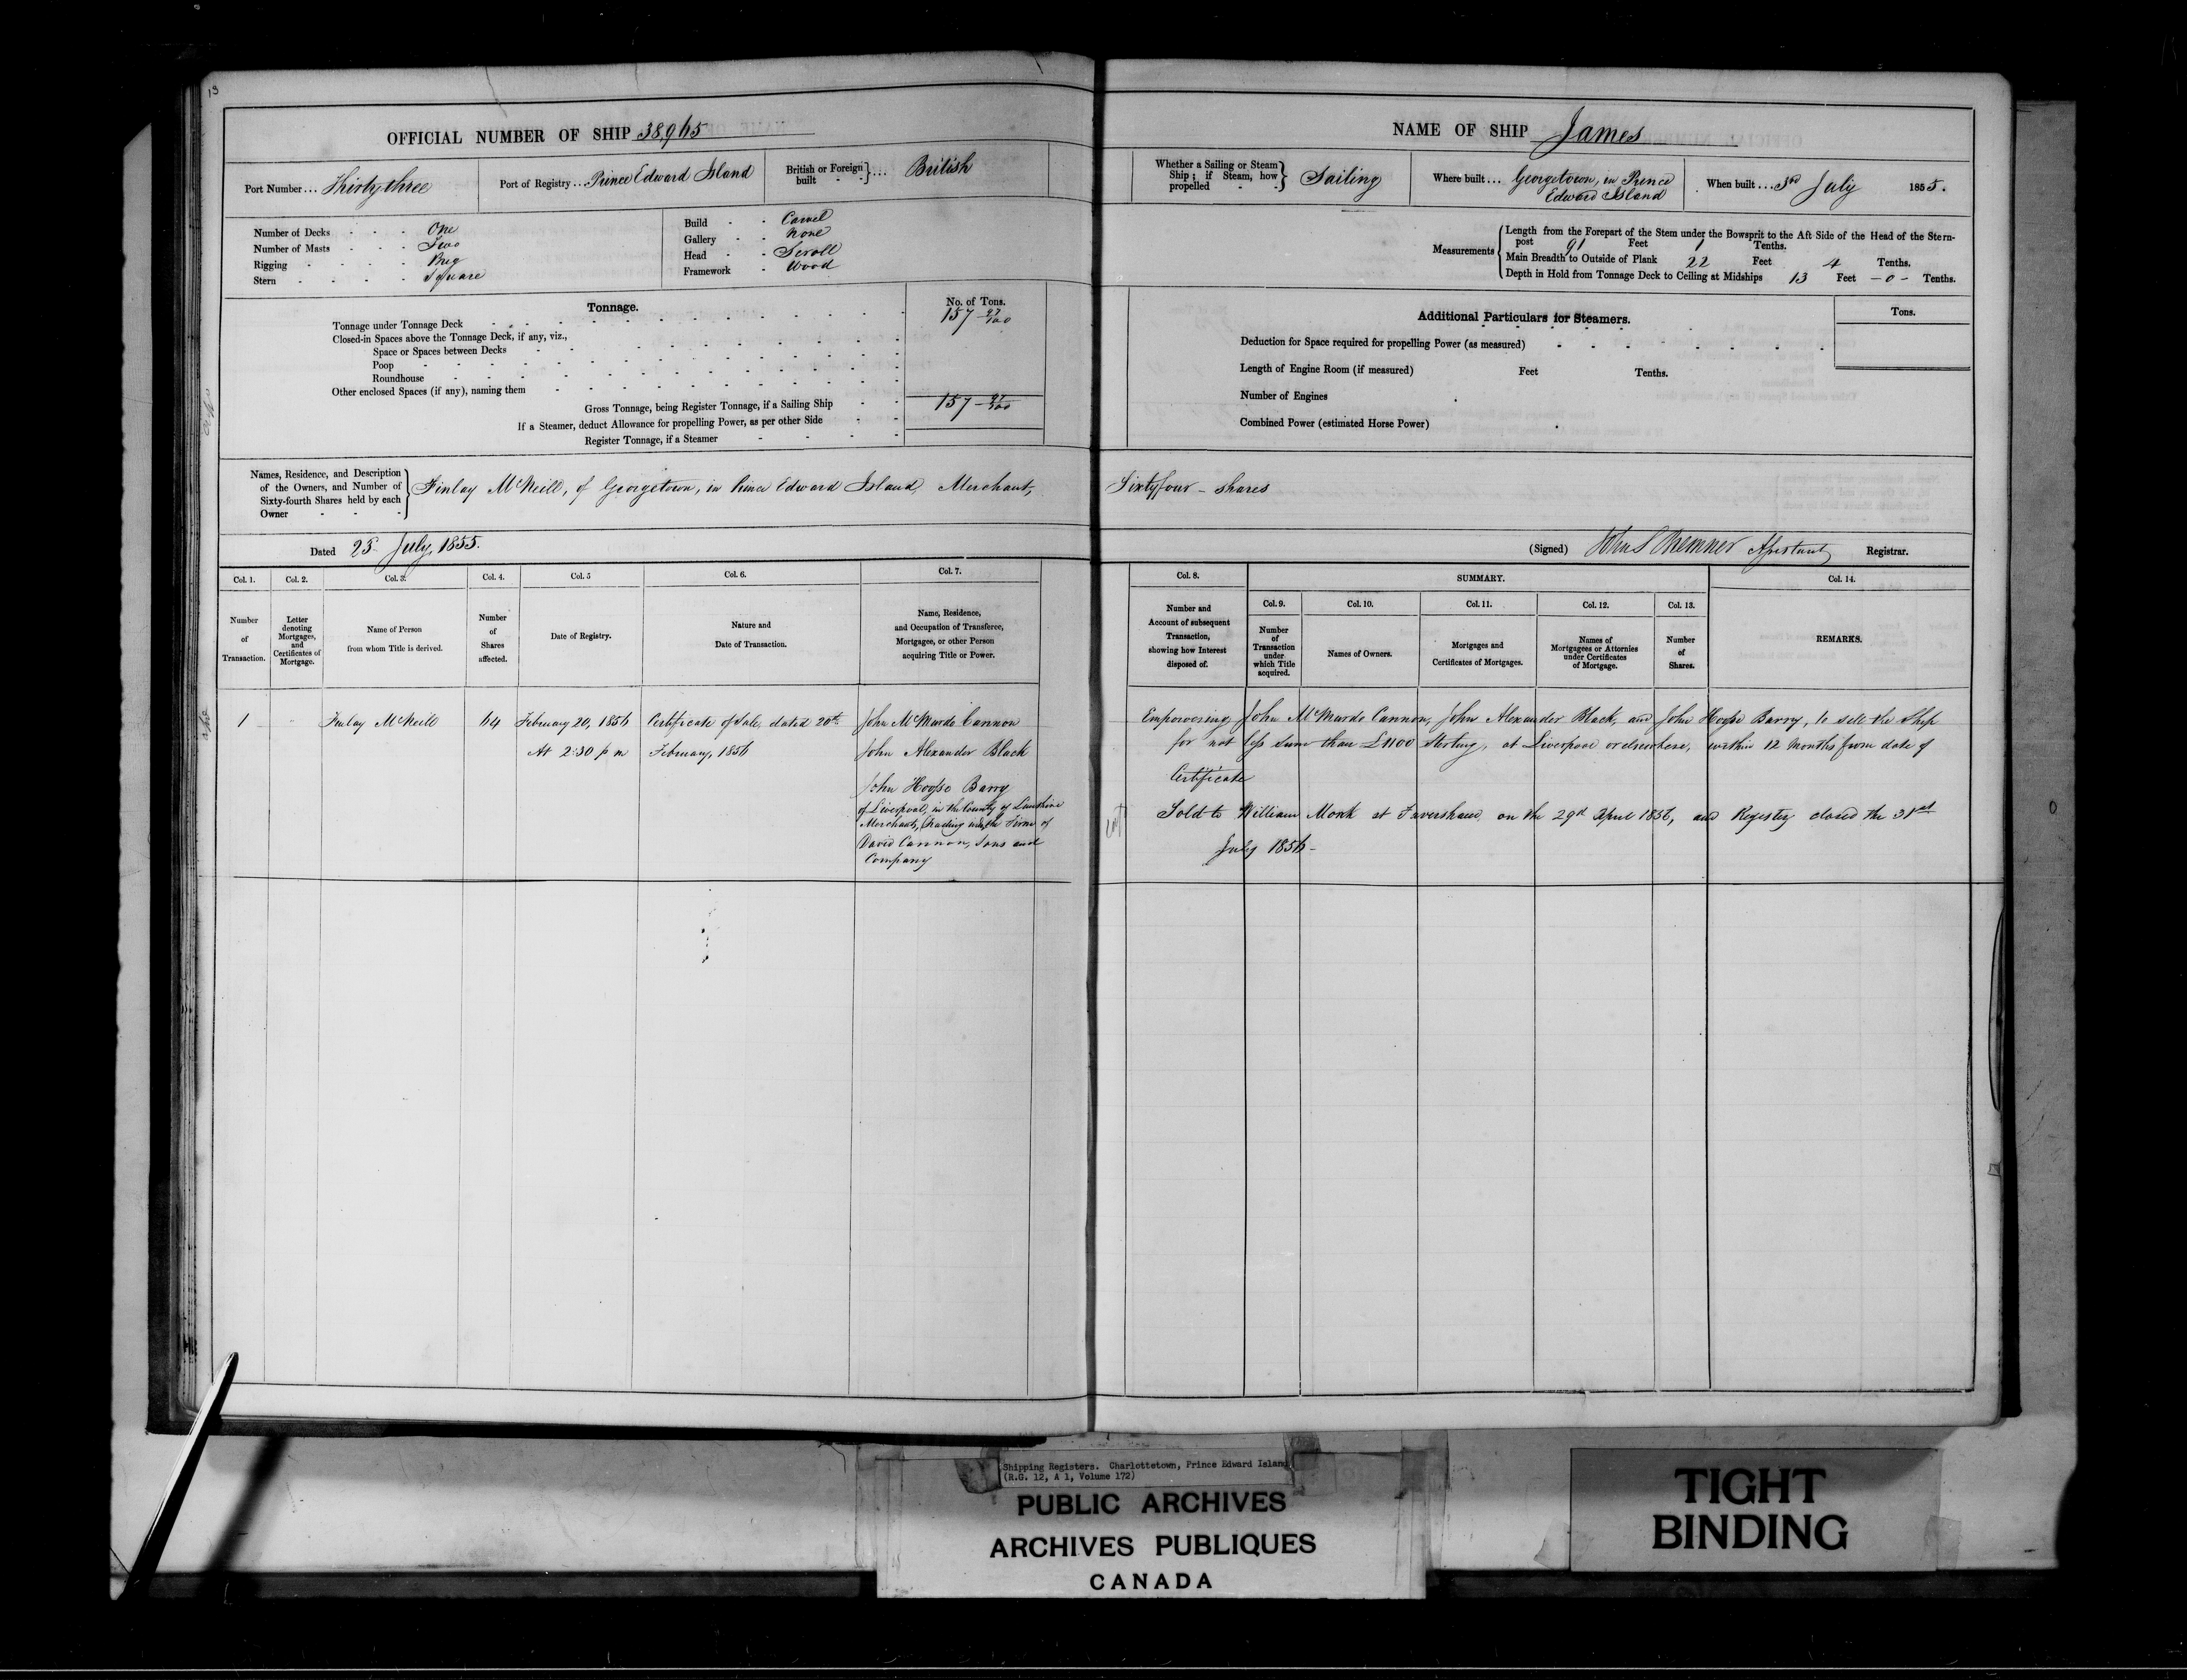 13
OFFICIAL NUMBER OF SHIP 38,965
Port Number... Thirty three
Port of Registry... Prince Edward Island
British or Foreign built - - } ... British
Number of Decks - - - One
Number of Masts - - - Two
Rigging - - - - Brig
Stern - - - - Square
Build - - Carvel
Gallery - - None
Head - - Scroll
Framework - Wood
Tonnage.
No. of Tons.
Tonnage under Tonnage Deck 157
Closed-in Spaces above the Tonnage Deck, if any, viz.,
Space or Spaces between Decks
Poop
Roundhouse
Other enclosed Spaces (if any), naming them
Gross Tonnage, being Register Tonnage, if a Sailing Ship 157
If a Steamer, deduct Allowance for propelling Power, as per other Side
Register Tonnage, if a Steamer
Names, Residence, and Description
of the Owners, and Number of
Sixty-fourth Shares held by each
Owner
Finlay McNeill, of Georgetown, in Prince Edward Island, Merchant,
Dated 25 July, 1855.
Col. 1. Col. 2. Col. 3. Col. 4. Col. 5 Col. 6. Col. 7.
Number of Transaction.
Letter denoting Mortgages, and Certificates of Mortgage.
Name of Person from whom Title is derived.
Number of Shares affected.
Date of Registry.
Nature and Date of Transaction.
Name, Residence, and Occupation of Transferee, Mortgagee, or other Person acquiring Title or Power.
1 Finlay McNeill 64 February 20, 1856 Certificate of Sale, dated 20th John McMurdo Cannon
At 2:30 p m February, 1856 John Alexander Black
John Hooſse Barry
of Liverpool, in the County of
Merchants, trading under the Firm of
David Cannon, Sons and
Company
NAME OF SHIP James
Whether a Sailing or Steam Ship; if Steam, how propelled - - } Sailing
Where built... Georgetown, in Prince
Edward Island
When built... 3rd July 1855.
Measurements
Length from the Forepart of the Stem under the Bowsprit to the Aft Side of the Head of the Stern-
post 91 Feet 1 Tenths.
Main Breadth to Outside of Plank 22 Feet 4 Tenths.
Depth in Hold from Tonnage Deck to Ceiling at Midships 13 Feet - 0 - Tenths.
Additional Particulars for Steamers.
Tons.
Deduction for Space required for propelling Power (as measured)
Length of Engine Room (if measured) Feet Tenths.
Number of Engines
Combined Power (estimated Horse Power)
Sixtyfour - shares
(Signed) John S Bremner Aſsistant Registrar.
Col. 8. SUMMARY. Col. 14.
Col. 9. Col. 10. Col. 11. Col. 12. Col. 13.
Number and Account of subsequent Transaction, showing how Interest disposed of.
Number of Transaction under which Title acquired.
Names of Owners.
Mortgages and Certificates of Mortgages.
Names of Mortgagees or Attornies under Certificates of Mortgage.
Number of Shares.
REMARKS.
Empowering John McMurdo Cannon, John Alexander Black, and John Hooſse Barry, to sell the Ship
for not leſs sum than £1100 Sterling, at Liverpool or elsewhere, within 12 Months from date of
Certificate
Sold to William Monk at Faversham, on the 29th April 1856, and Registry closed the 31st
July 1856 -
Shipping Registers. Charlottetown, Prince Edward Island
(R.G. 12, A 1, Volume 172)
PUBLIC ARCHIVES
ARCHIVES PUBLIQUES
CANADA
TIGHT
BINDING